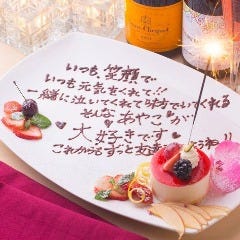 いつも笑顔で
いつも元気をくれて!!
一緒に泣いてくれて味方でいてくれる
そんなあやこが
大好きです
これからもずっと